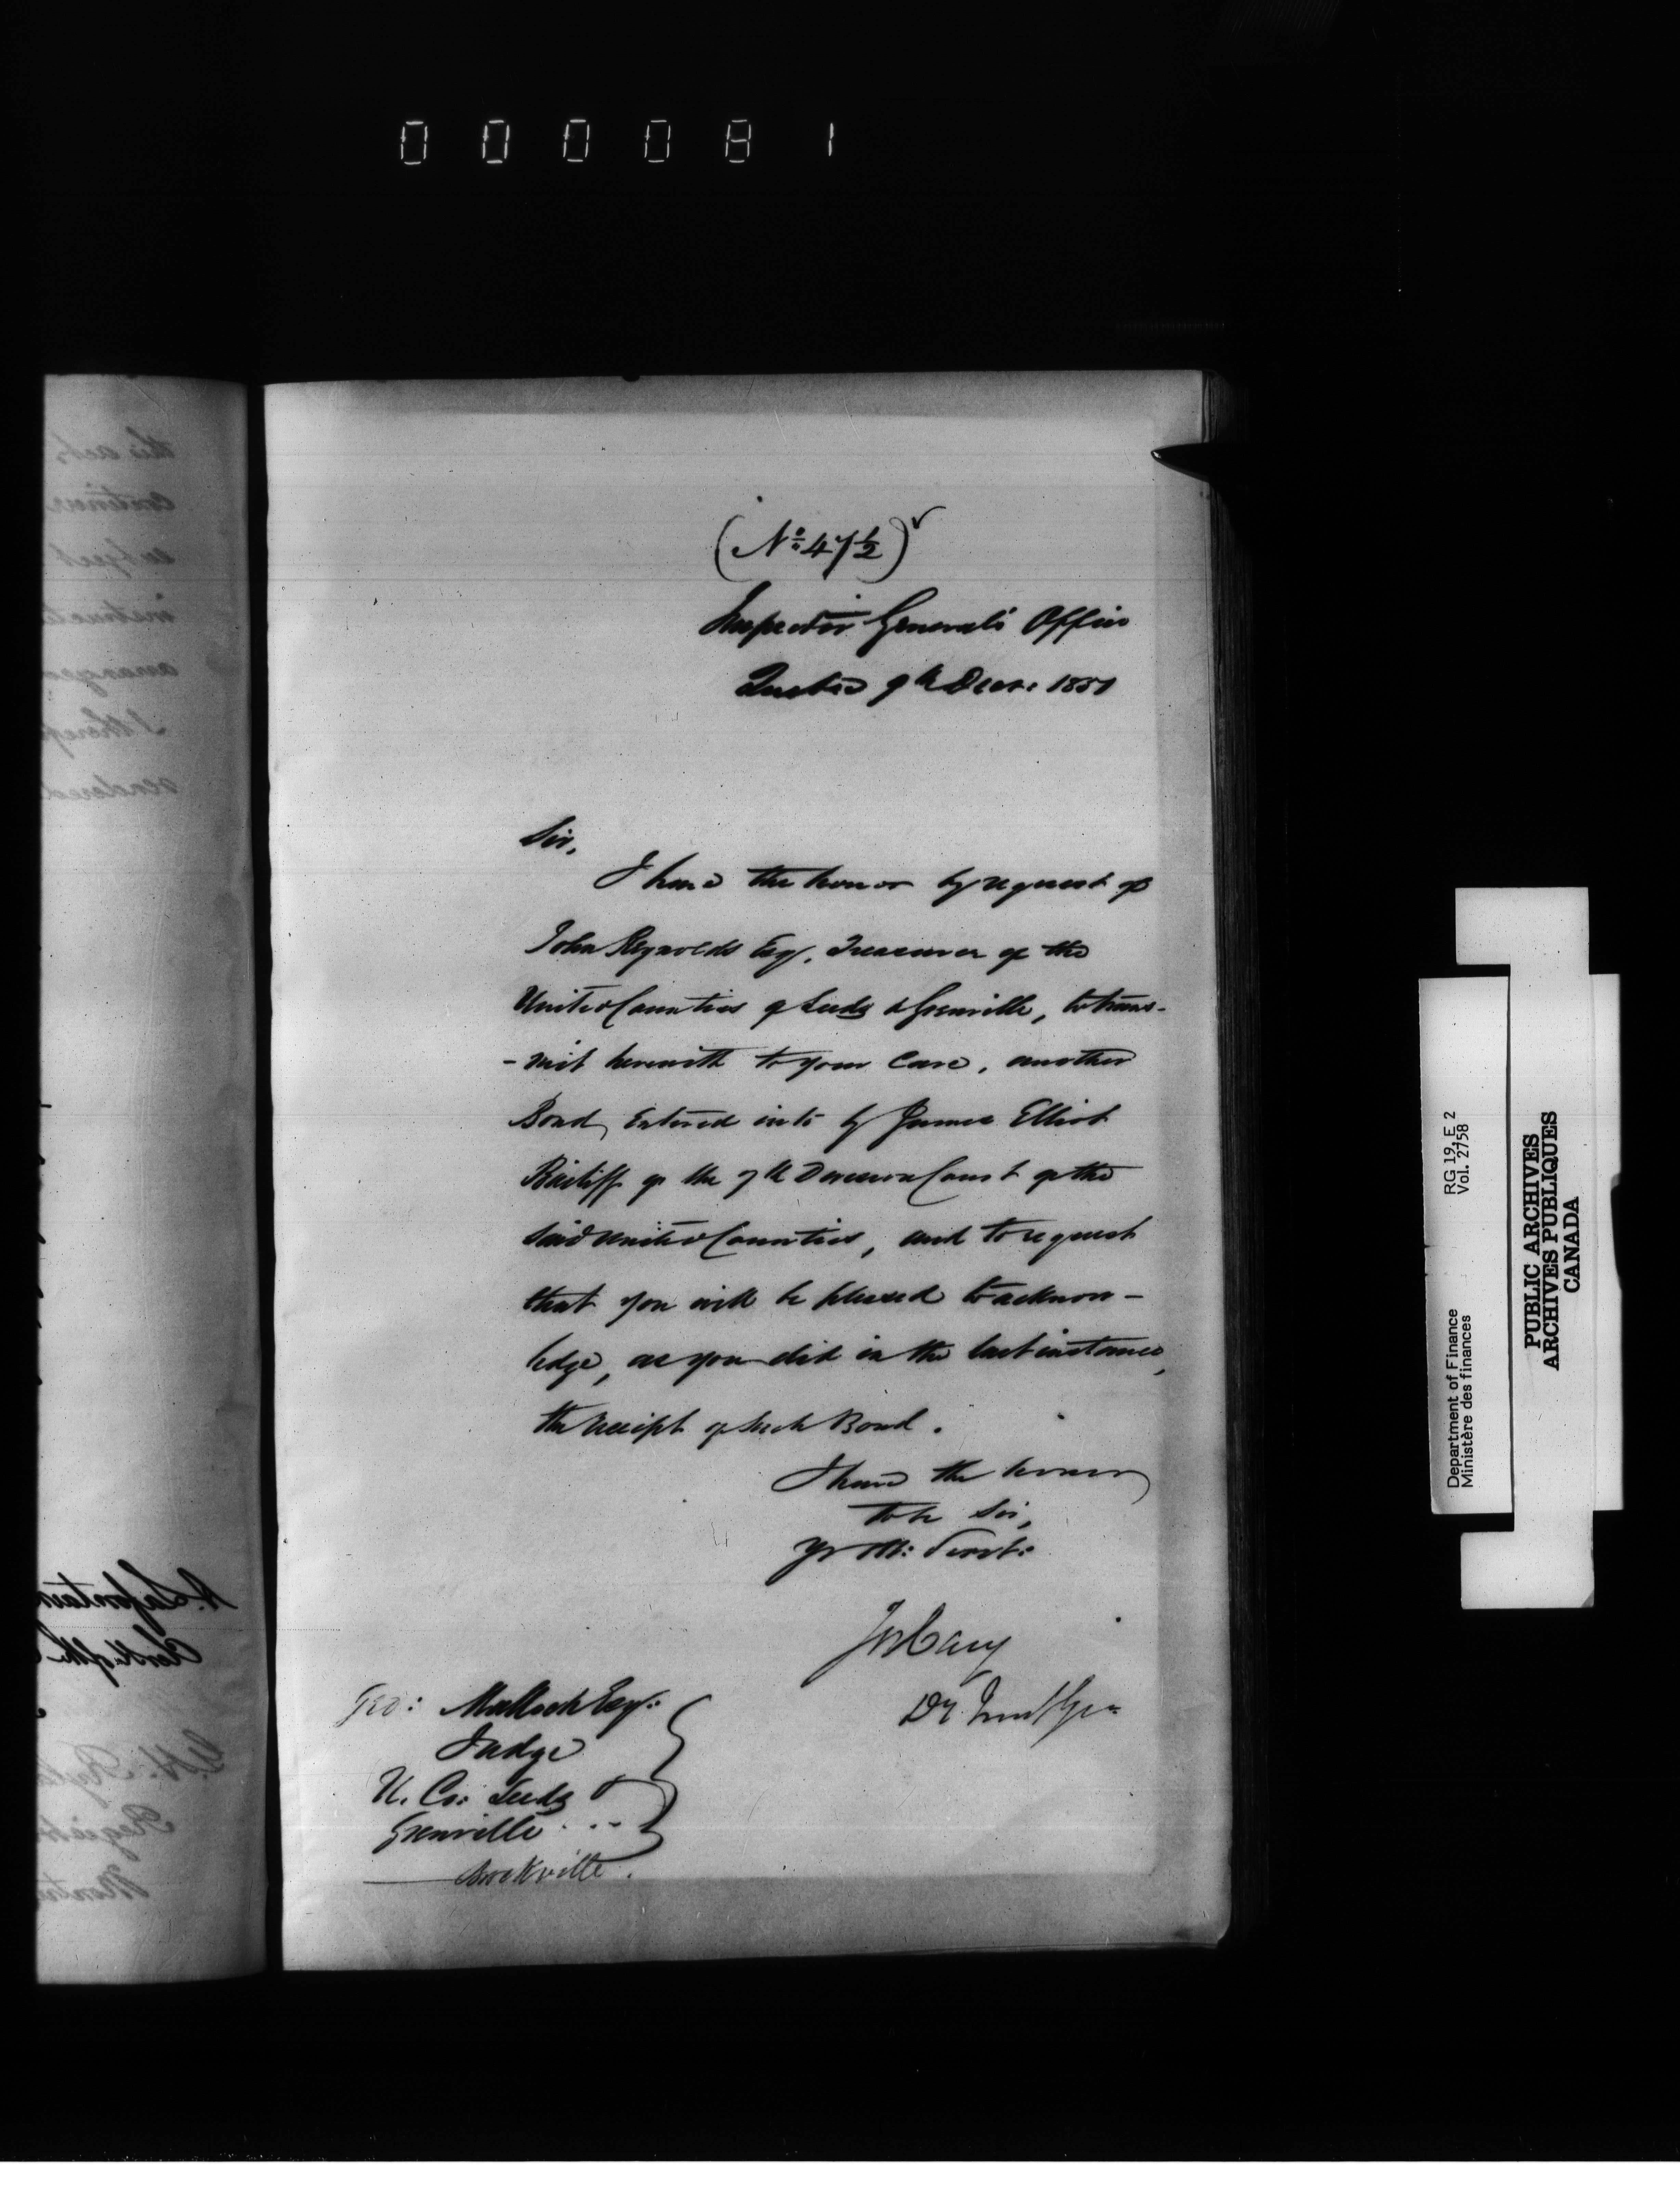 000081
this act,
continu
subject
instruct
arranger
I theref
rendered
R. Lafontain
Clerk of the
Regist
(No. 47½)
Inspector General's Office
Quebec 9th Decr: 1851
Sir,
I have the honor by request of
John Reynolds Esqr. Treasurer of the
United Counties of Leeds & Grenville, to trans-
-mit herewith to your care, another
Bond, entered into by James Elliot
Bailiff of the 7th Division Court of the
said United Counties, and to request
that you will be pleased to acknow-
ledge, as you did in the last instance,
the receipt of such Bond.
I have the honor
to be Sir,
Yr Ob: Servt:
Jos Cary
Dy Inspr Genl
Geo: Malloch Esqr:
Judge
U. Co: Leeds &
Grenville...
Brockville.
Department of Finance RG 19, E 2
Ministère des finances Vol. 2758
PUBLIC ARCHIVES
ARCHIVES PUBLIQUES
CANADA